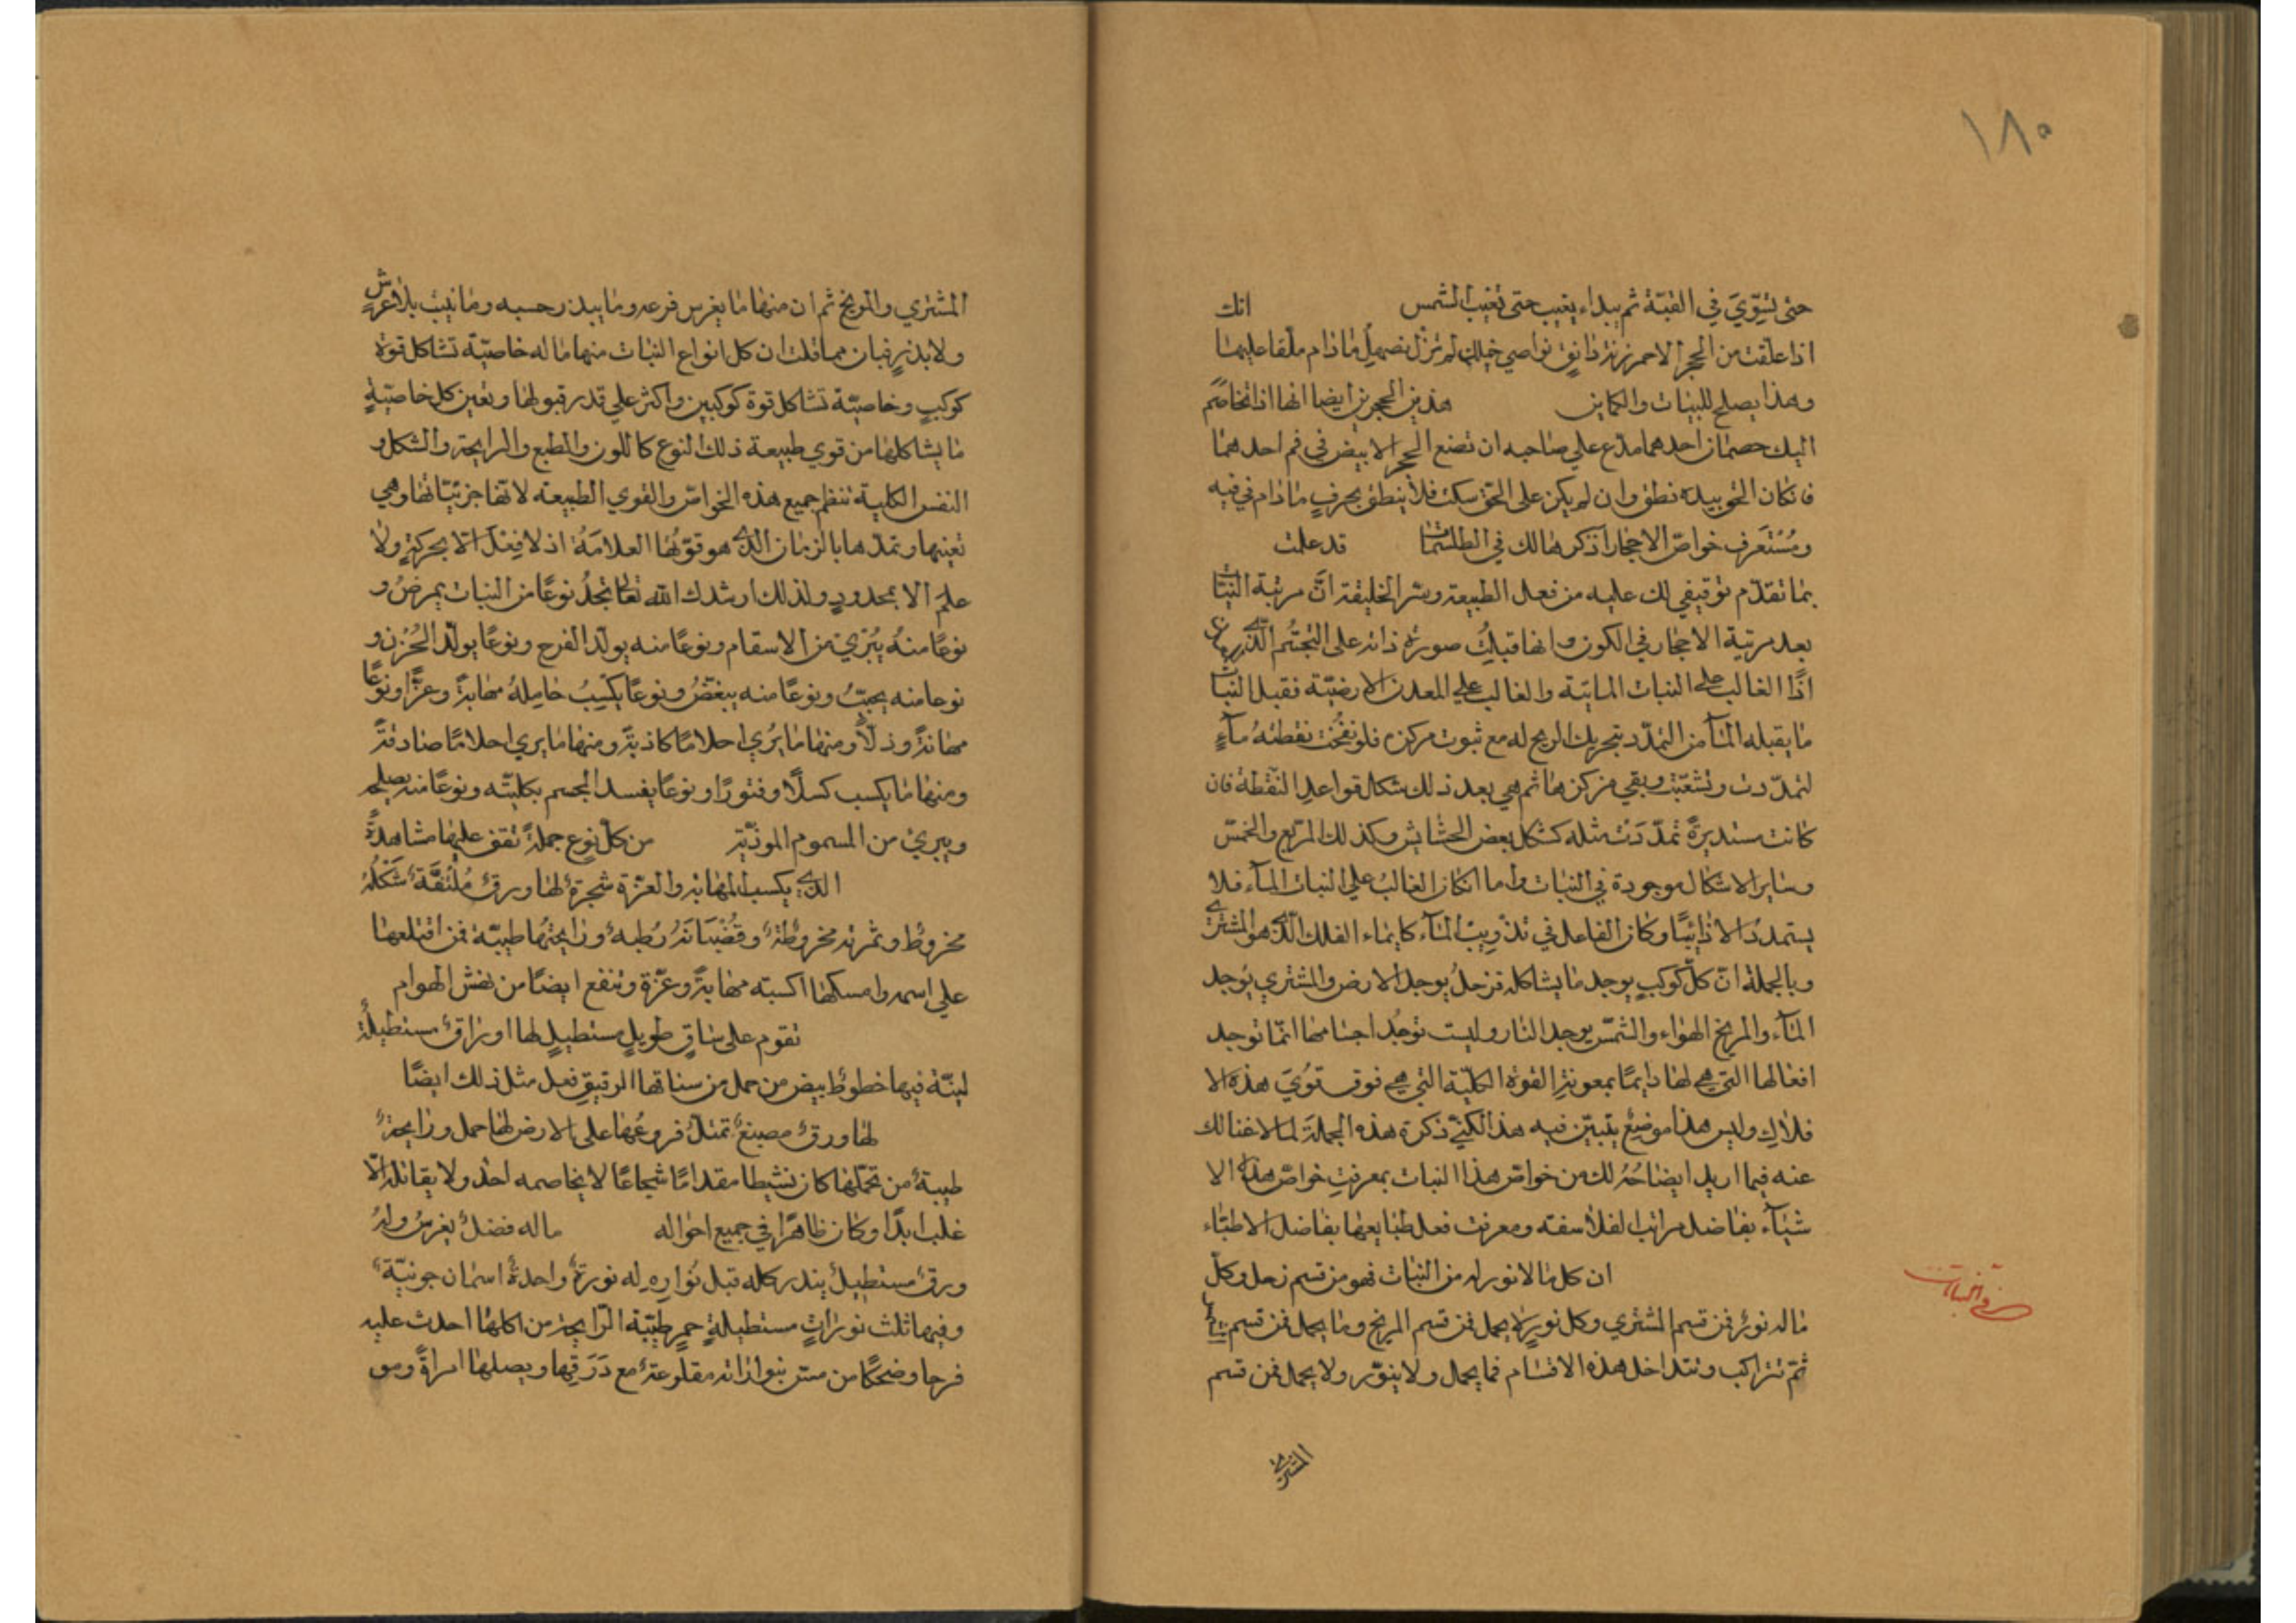 ١٨٥
حتى تستوي في القبّة ثم يبداء يغيب حتى تغيب الشمس انك
اذا علقت من الحجر الاحمر زنة دانق نواصي خيلك لم تزل تصهل ما دام معلقا عليها
وهذا يصلح للبيات والكماين هذين الحجرين ايضا انها اذا تخاصم
اليك خصمان احدهما مدع على صاحبه ان تضع الحجر الابيض في فم احدهما
فان كان الحق بيده نطق وان لم يكن على الحق سكت فلا ينطق بحرف ما دام في فيه
وستعرف خواصّ الاحجار اذكرها لك في الطلسمات قد علمت
بما تقدّم توقيفي لك عليه من فعل الطبيعة وسر الخليقة انّ مرتبة النبات
بعد مرتبة الاحجار في الكون وانها قبلت صورة زائد على التجسّم الذي
اذًا الغالب على النبات المايية والغالب على المعدن الارضيّة فقبل النبات
ما يقبله المآء من التمدّد بتحريك الريح له مع ثبوت مركزه فلو نفخت نقطه مآءٍ
لتمدّدت وتشعّبت وبقي مركزها ثم هي بعد ذلك شكل قواعد النقطة فان
كانت مستديرةً تمدّدت مثله كشكل بعض الحشايش وكذلك المربّع والمخمّس
وساير الاشكال موجودة في النبات واما ان كان الغالب علي النبات المآء فلا
يستمدّ الا ذائبًا وكان الفاعل في تذويب المآء كايماء الفلك الذي هو المشتري
وبالجملة انّ كلّ كوكبٍ يوجد ما يشاكله فزحل يوجد الارض والمشتري يوجد
المآء والمريخ الهواء والشمس يوجد النار وليست توجد اجسامها انّما توجد
افعالها التي هي لها دايمًا بمعونة القوة الكليّة التي هي فوق قوي هذه الا
فلاك وليس هذا موضع يتبيّن فيه هذا لكنّي ذكرة هذه الجملة لما لا غنا لك
عنه فيما اريد ايضاحه لك من خواص هذا النبات بمعرفت خواص هذه الا
شيآء بفاضل مراتب الفلاسفة ومعرفت فعل طبايعها بفاضل الاطبّاء
ان كل ما لا نور له من النبات فهو من قسم زحل وكلّ
ما له نورٌ فمن قسم المشتري وكل نوير لا يحمل فمن قسم المريخ وما يحمل فمن قسم
ثمّ تتراكب وتتداخل هذه الاقسام فما يحمل ولا ينوّر ولا يحمل فمن قسم
المشتري
المشتري والمريخ ثم ان منها ما يغرس فرعه وما يبذر حسبه وما نبت بلا غرسٍ
ولا بذرٍ فبان مما قلت ان كل انواع النبات منها ما له خاصيّة تشاكل قوة
كوكبٍ وخاصيّة تشاكل قوة كوكبين واكثر على قدر قبولها وتعين كل خاصيّةٍ
ما يشاكلها من قوي طبيعة ذلك النوع كاللون والطبع والرايحة والشكل و
النفس الكلية تنظم جميع هذه الخواصّ والقوي الطبيعة لانها جزئيّاتها وهي
تعنيها وتمدّها بالزمان الذي هو قوتها العلامة اذ لا فعل الا بحركةٍ ولا
علم الا بمحدودٍ ولذلك ارشدك الله تعالى تجد نوعًا من النبات يمرض و
نوعًا منه يُبرئ من الاسقام ونوعًا منه يولّد الفرح ونوعًا يولّد الحزن و
نوعا منه يحبّب ونوعًا منه يبغّض ونوعًا يكسب حامله مهابةً وعزًّا ونوعًا
مهانةً وذلًّا ومنها ما يُري احلامًا كاذبةً ومنها ما يري احلامًا صادقةً
ومنها ما يكسب كسلًا وفتورًا ونوعًا يفسد الجسم بكليّته ونوعًا منه يصلحه
ويبرئ من السموم الموذيّة من كلّ نوعٍ جملةً تقف عليها مشاهدةً
الذي يكسب المهابة والعزّة شجرةٌ لها ورقٌ ملتفّةٌ شكله
مخروط وثمرته مخروطةٌ وقضبانه رطبةٌ ورايحتها طيبّة فمن اقتلعها
علي اسمه وامسكها اكسبته مهابةً وعزّة وتنفع ايضًا من نهش الهوام
تقوم على ساقٍ طويلٍ مستطيلٍ لها اوراقٌ مستطيلةٌ
لينّة فيها خطوطٌ بيض من حمل من ساقها الرقيق فعل مثل ذلك ايضًا
لها ورقٌ مصبغٌ تمتدّ فروعها على الارض لها حمل ورايحةٌ
طيبةٌ من تحمّلها كان نشيطا مقدامًا شجاعًا لا يخاصمه احد ولا يقاتله الّا
غلب ابدًا وكان ظاهرًا في جميع احواله ما له فضل يغرس وله
ورقٌ مستطيلٌ يندر كله قبل نُوّاره له نورةٌ واحدةٌ اسمان جونيّةٌ
وفيها ثلث نوراتٍ مستطيلةٍ حمرٍ طيّبة الرّايحة من اكلها احدث عليه
فرحا وضحكًا من مقلوعة مع ورقها ويصلها امراةً